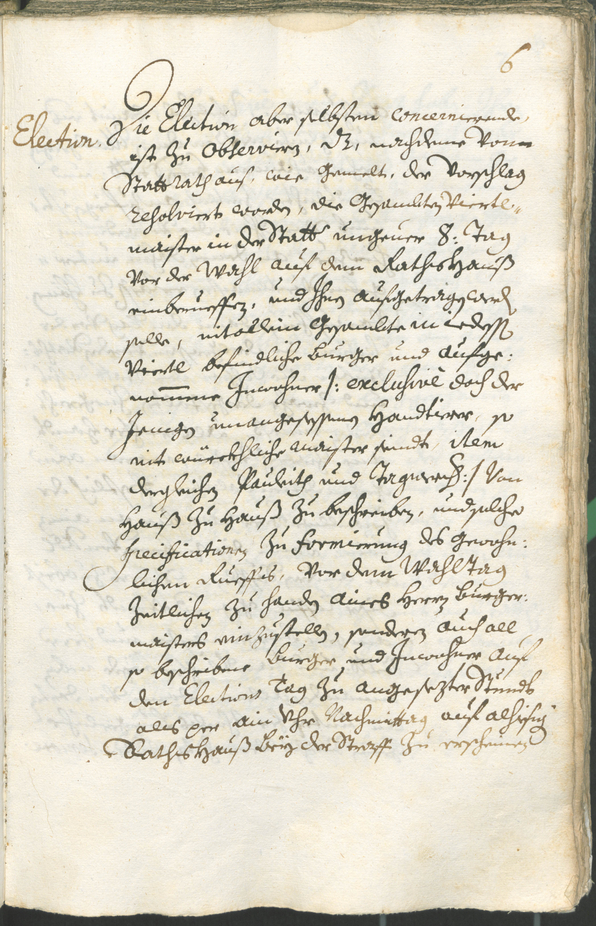 6
Election.
Die Election aber selbsten concernierende,
ist zu Observiern, dz, nachdeme vom
Stattrath aus, wie gemelt, der Vorschlag
resolviert worden, die Gesambten Viertl-
maister in der Statt ungeuer 8: Tag
vor der Wahl auf dem Rathshauß
einberueffen, und Ihnen aufgetragen werden
solle, nit allein Gesambte in iedess
Viertl befindliche Burger und aufge:
nomme Inwohner /: exclusivè doch der
Jenigen unangesessenen Handtierer, so
nit würckhliche maister seindt, item
dergleichen Pauleith und Tagwercher :/ von
Hauß zu Hauß zu beschreiben, und solche
specificationen zu Formierung des Gewohn:
lichen Rueffes, vor dem Wahltag
zeitlichen zu handen aines Herrn Burger:
maisters einzustellen, sonderen auch all
so beschribene Burger und Inwohner auf
den Elections Tag zu angesezter Stundt
als per ain Uhr Nachmittag auf alhiesig
Rathshauß bey der Straff zu erscheinen